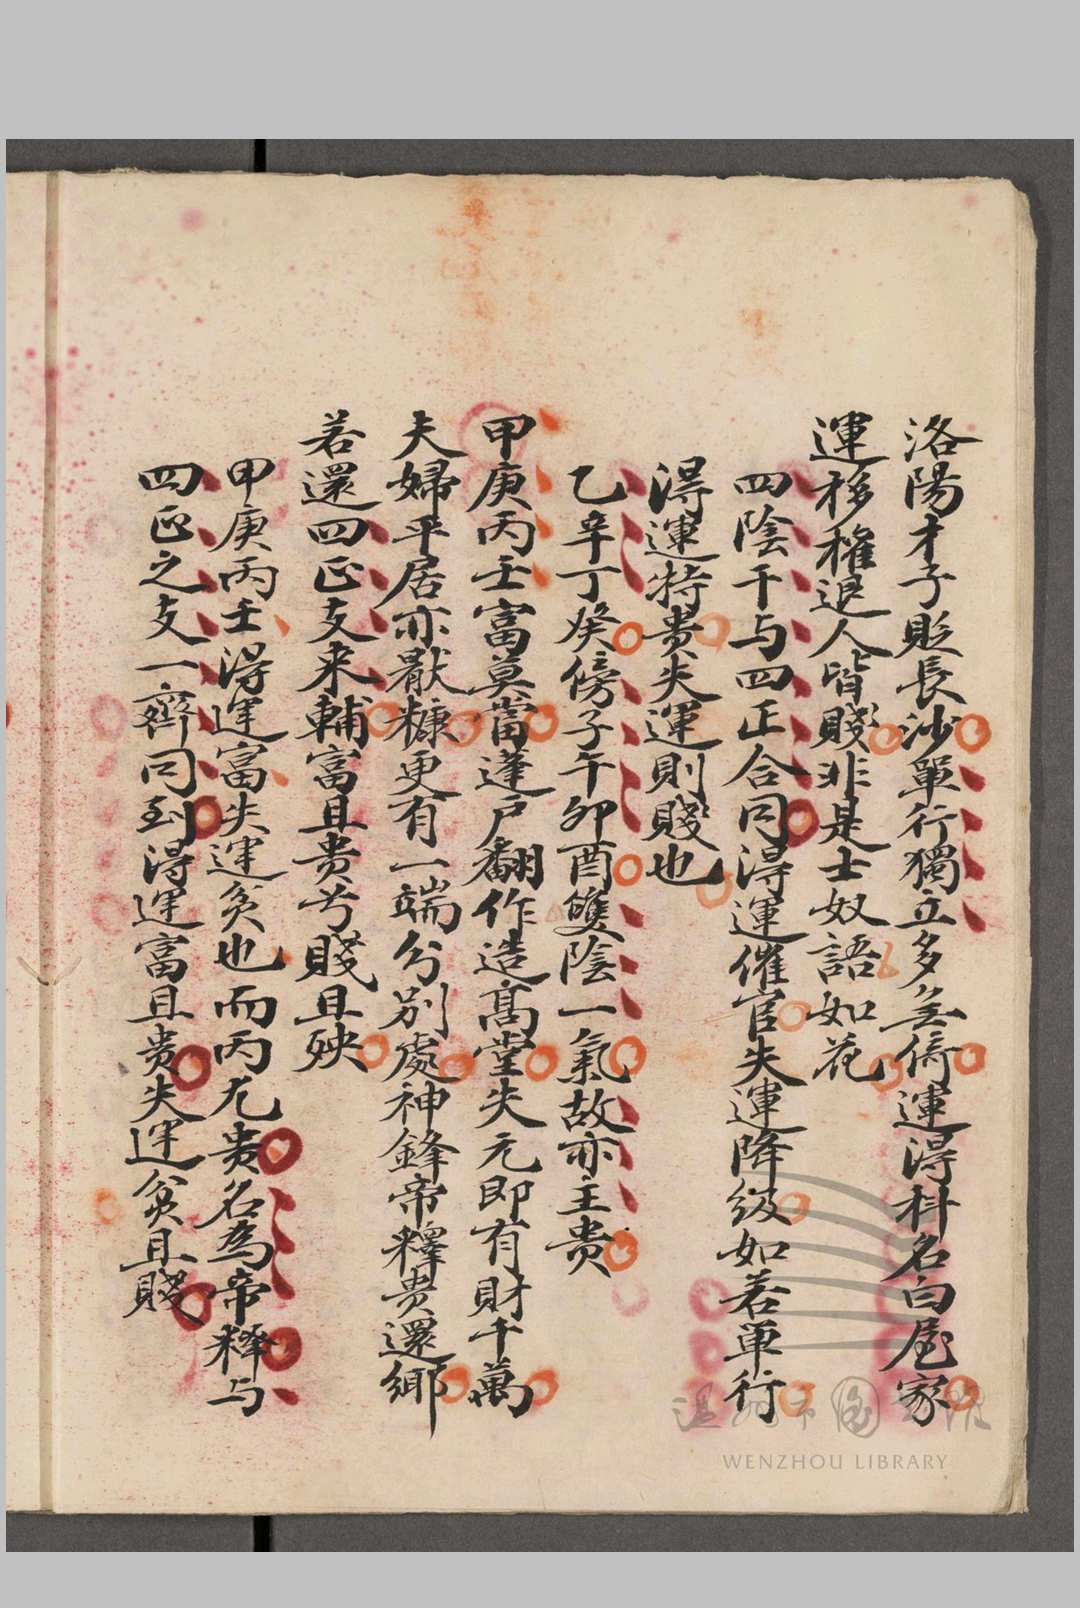 洛陽才子貶長沙單行獨立多無倚運得科名白屋家
運移權退人皆賤非是士奴語如花
四陰干与四正合同淂運催官失運降級如若单行
淂運特贵失運則賤也
乙辛丁癸傍子午卯酉雙陰一氣故亦主贵
甲庚丙壬富莫當蓬戶翻作造髙堂失元即有財千萬
夫婦平居亦厭糠更有一端分别處神鋒帝釋贵還鄉
若還四正支来輔富且贵兮賤且殃
甲庚丙壬淂運富失運貧也而丙尤贵名為帝释与
四正之支一齊同到淂運富且贵失運貧且賤
WENZHOU LIBRARY